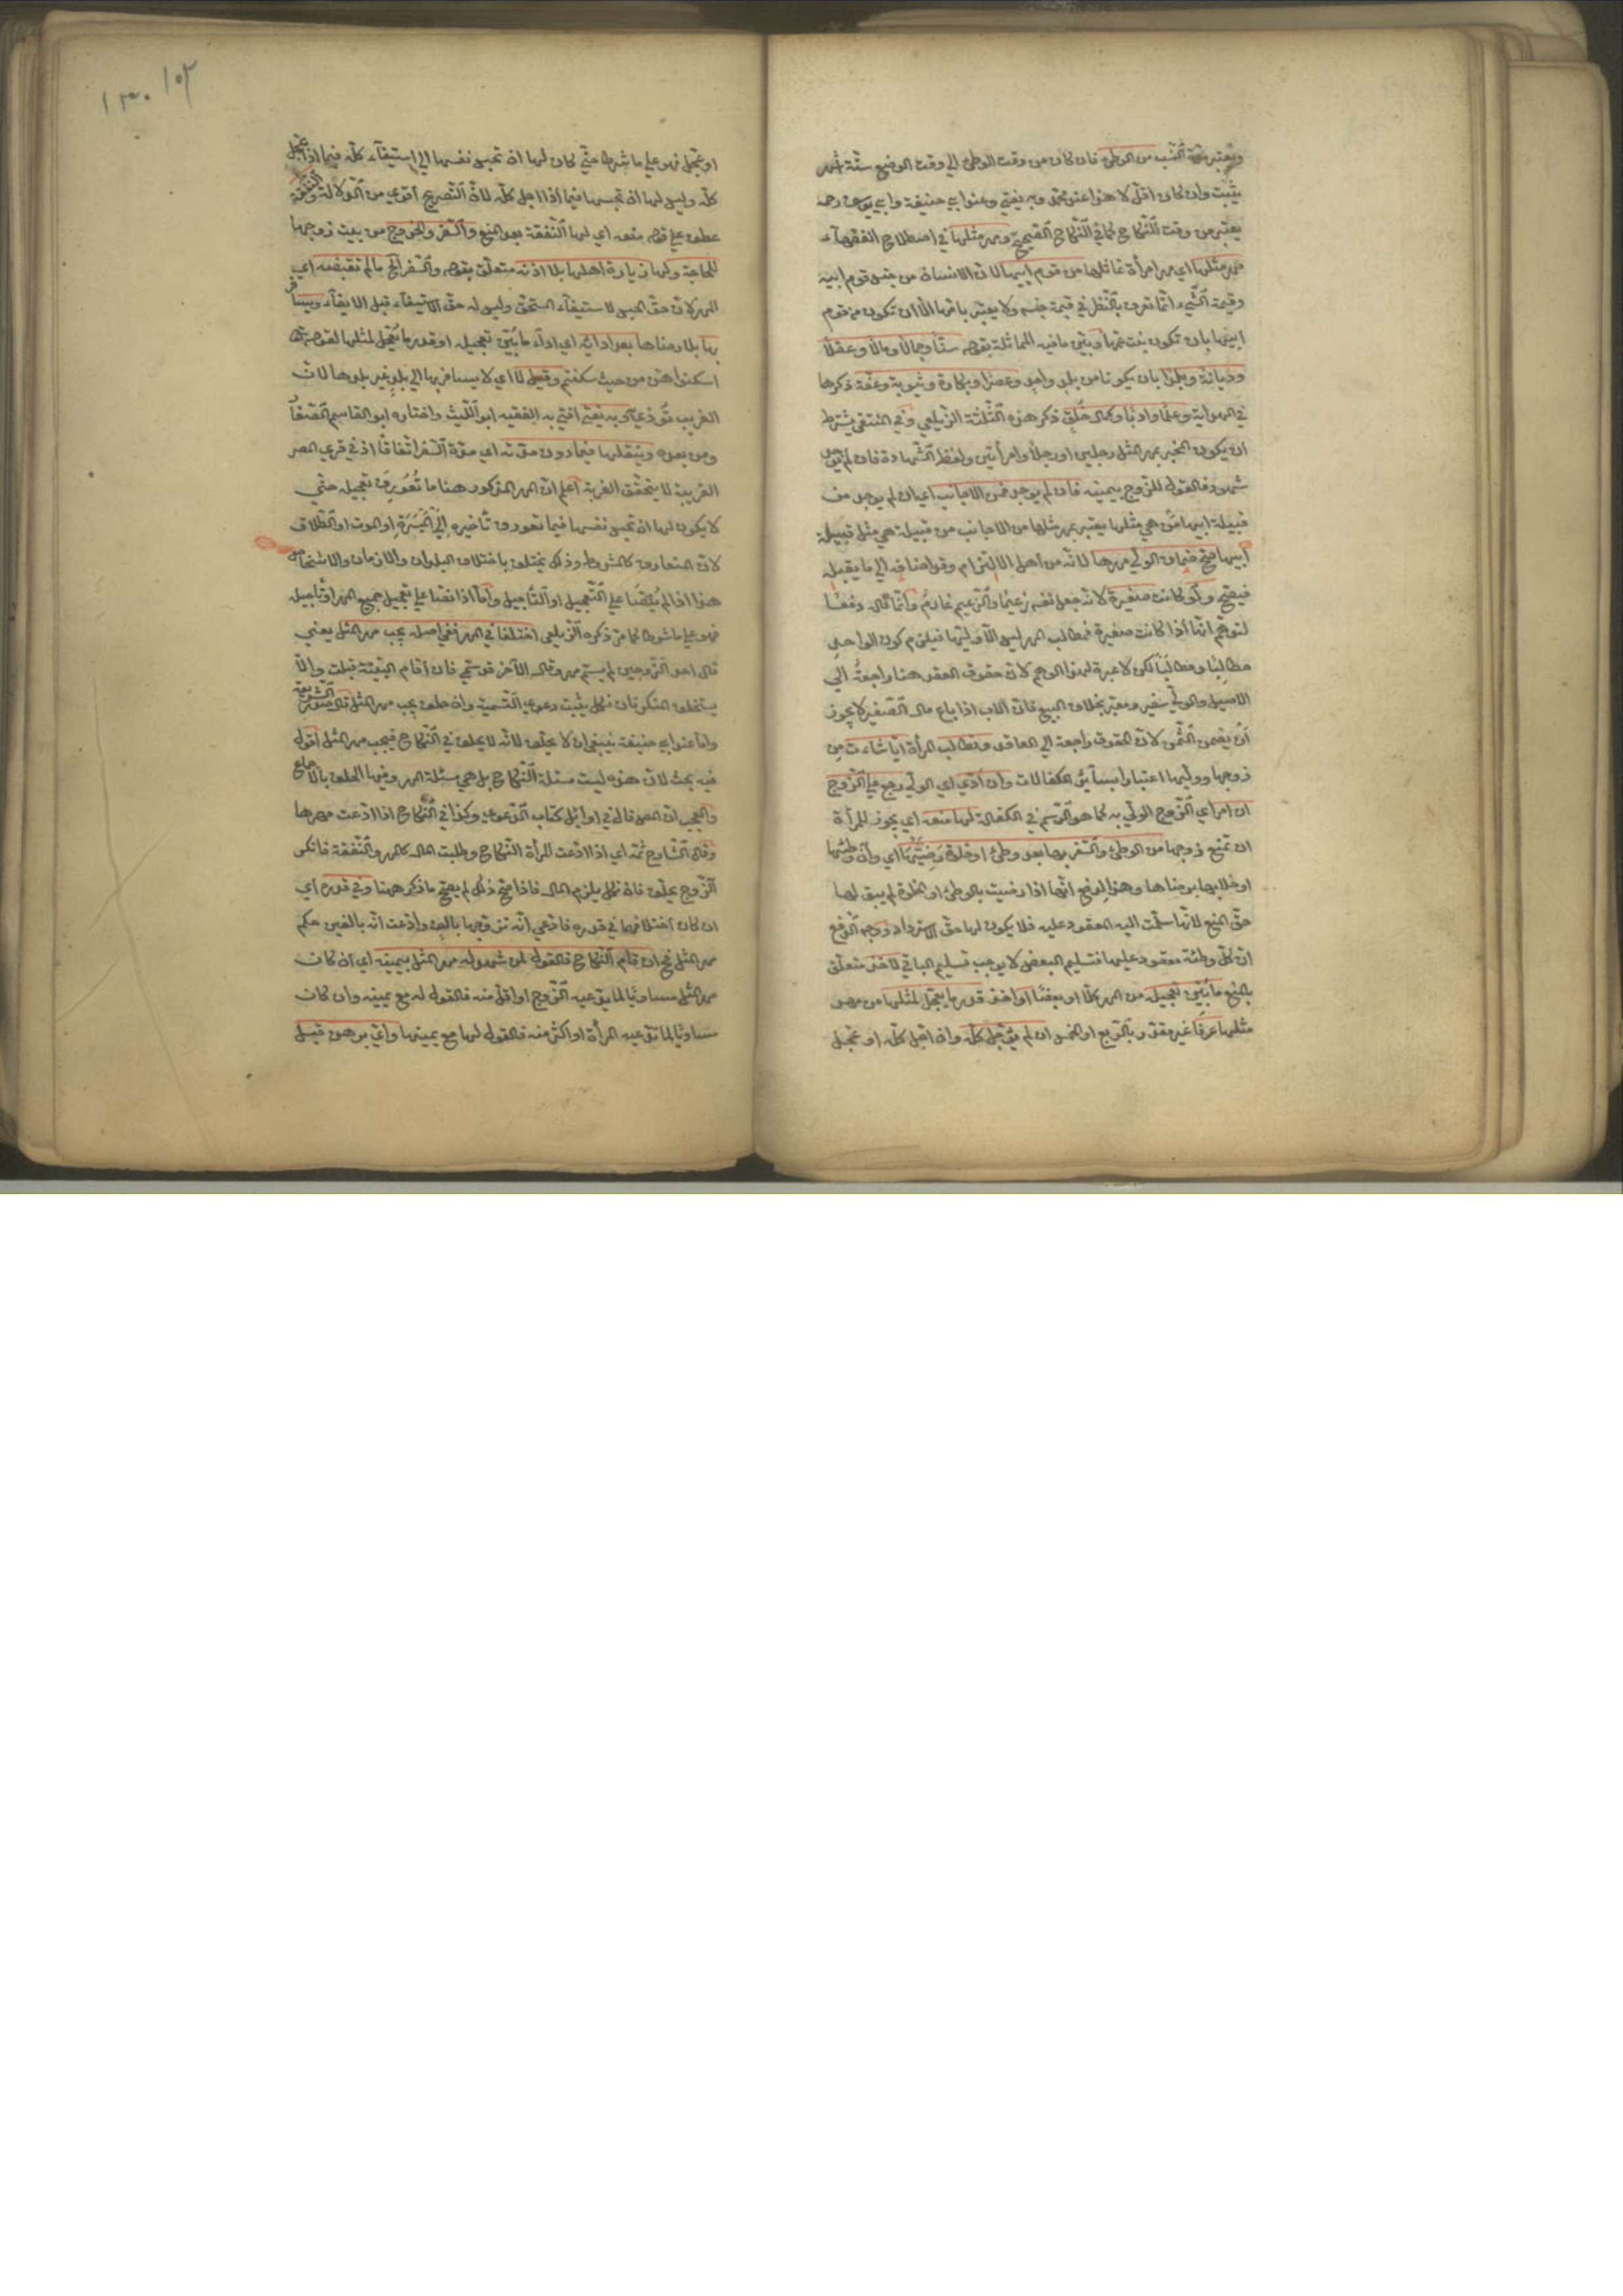 ويعتبر مدة النسب من الوطئ فان كان من وقت الوطئ الي وقت الوضع ستة اشهر
يثبت وان كان اقل لا هذا عند محمد وبه يفتي وعند ابي حنيفة وابي يوسف رحمه
يعتبر من وقت النكاح كما في النكاح الصحيح ومهر مثلها في اصطلاح الفقهاء
مهر مثلها اي مهر امرأة تماثلها من قوم ابيها لان الانسان من جنس قوم ابيه
وقيمة الشيء انما تعرف بالنظر في قيمة جنسه ولا يعتبر بامها الا ان تكون من قوم
ابيها بان تكون بنت عمها وبين ما فيه المماثلة بقوله سنا وجمالا ومالا وعقلا
وديانة وبلدا بان يكونا من بلد واحد وعصرا وبكارة وثيوبة وعفة ذكرها
في الهداية وعلما وادبا وكمال خلق ذكر هذه الثلثة الزيلعي وفي المنتقي يشترط
ان يكون المخبر بمهر المثل رجلين او رجلا وامرأتين ولفظ الشهادة فان لم يوجد
شهود فالقول للزوج بيمينه فان لم يوجد فمن الاجانب اي ان لم يوجد من
قبيلة ابيها من هي مثلها يعتبر بمهر مثلها من الاجانب من قبيلة هي مثل قبيلة
ابيها صح ضمان الولي مهرها لانه من أهل الالتزام وقد اضافه الي ما يقبله
فيصح ولو كانت صغيرة لانه جعل نفسه زعيما والزعيم غارم وانما قال دفعا
لتوهم انها اذا كانت صغيرة فمطالب المهر ليس الا وليها فيلزم كون الواحد
مطالبا ومطالبا لكن لا عبرة لهذا الوهم لان حقوق العقد هنا راجعة الي
الاصيل والولي سفير ومعبر بخلاف البيع فان الاب اذا باع مال الصغير لا يجوز
أن يضمن الثمن لان الحقوق راجعة الي العاقد وتطالب المرأة ايا شاءت من
زوجها ووليها اعتبارا بسائر الكفالات وان أدي اي الولي رجع علي الزوج
ان امر اي الزوج الولي به كما هو الرسم في الكفالة لها منعه اي يجوز للمرأة
ان تمنع زوجها من الوطئ والسفر بها بعد وطئ او خلوة رضيتهما اي وان وطئها
او خلا بها برضاها وهذا لدفع انها اذا رضيت بالوطئ او الخلوة لم يبق لها
حق المنع لانها سلمت اليه المعقود عليه فلا يكون لها حق الاسترداد ووجه الدفع
ان كل وطئة معقود عليها فتسليم البعض لا يوجب تسليم الباقي لاخذ متعلق
بالمنع ما بين تعجيله من المهر كلا او بعضا او اخذ قدر ما يعجل لمثلها من مهر
مثلها عرفا غير مقدر بالربع او الخمس ان لم يؤجل كله وان اجل كله او عجل
او عجل فهو علي ما شرطا حتي كان لها ان تحبس نفسها الي استيفاء كله فيما اذا عجل
كله وليس لها ان تحبسها فيما اذا اجل كله لان التصريح أقوي من الدلالة والنفقة
عطف علي قوله منعه اي لها النفقة بعد المنع والسفر والخروج من بيت زوجها
للحاجة ولها زيارة اهلها بلا اذنه متعلق بقوله والسفر الخ ما لم تقبضه اي
المهر لان حق الحبس لاستيفاء المستحق وليس له حق الاستيفاء قبل الايفاء ويسافر
بها بلا رضاها بعد ادائه اي اداء ما بين تعجيله او قدر ما يعجل لمثلها لقوله تعالي
اسكنوا هن من حيث سكنتم وقيل لا اي لا يسافر بها الي بلد غير بلدها لان
الغريب تؤذي وبه يفتي افتي به الفقيه ابو الليث واختاره ابو القاسم الصفار
ومن بعده وينقلها فيما دون مدته اي مدة السفر اتفاقا اذ في قري المصر
القريبة لا يتحقق الغربة اعلم ان المهر المذكور هنا ما تعورف تعجيله حتي
لا يكون لها ان تحبس نفسها فيما تعورف تأخيره الي الميسرة او الموت او الطلاق
لان المتعارف كالمشروط وذلك يختلف باختلاف البلدان والازمان والاشخاص
هذا اذا لم ينصا علي التعجيل او التأجيل وأما اذا نصا علي تعجيل جميع المهر او تأجيله
فهو علي ما شرطا كما مر ذكره الزيلعي اختلفا في المهر ففي اصله يجب مهر المثل يعني
قال احد الزوجين لم يسم مهر وقال الآخر قد سمي فان أقام البينة قبلت والا
يستحلف المنكر فان نكل يثبت دعوي التسمية وان حلف يجب مهر المثل قال صدر الشريعة
واما عند ابي حنيفة ينبغي ان لا يحلف لانه لا يحلف في النكاح فيجب مهر المثل أقول
فيه بحث لان هذه ليست مسئلة النكاح بل هي مسئلة المهر وفيها الحلف بالاجماع
والعجب ان المص قال في اوائل كتاب الدعوي وكذا في النكاح اذا ادعت مهرها
وقال الشارح ثمه اي اذا ادعت المرأة النكاح وطلبت المال كالمهر والنفقة فانكر
الزوج يحلف فان نكل يلزم المال فاذا صح ذلك لم يصح ما ذكر ههنا وفي قدره اي
ان كان اختلافهما في قدره فادعي انه تزوجها بالف وادعت انه بالفين حكم
مهر المثل فح ان قام النكاح فالقول لمن شهد له مهر المثل بيمينه اي ان كان
مهر المثل مساويا لما يدعيه الزوج او اقل منه فالقول له مع يمينه وان كان
مساويا لما تدعيه المرأة او اكثر منه فالقول لها مع يمينها واي برهن قبل
١٣٠ ١٠٢